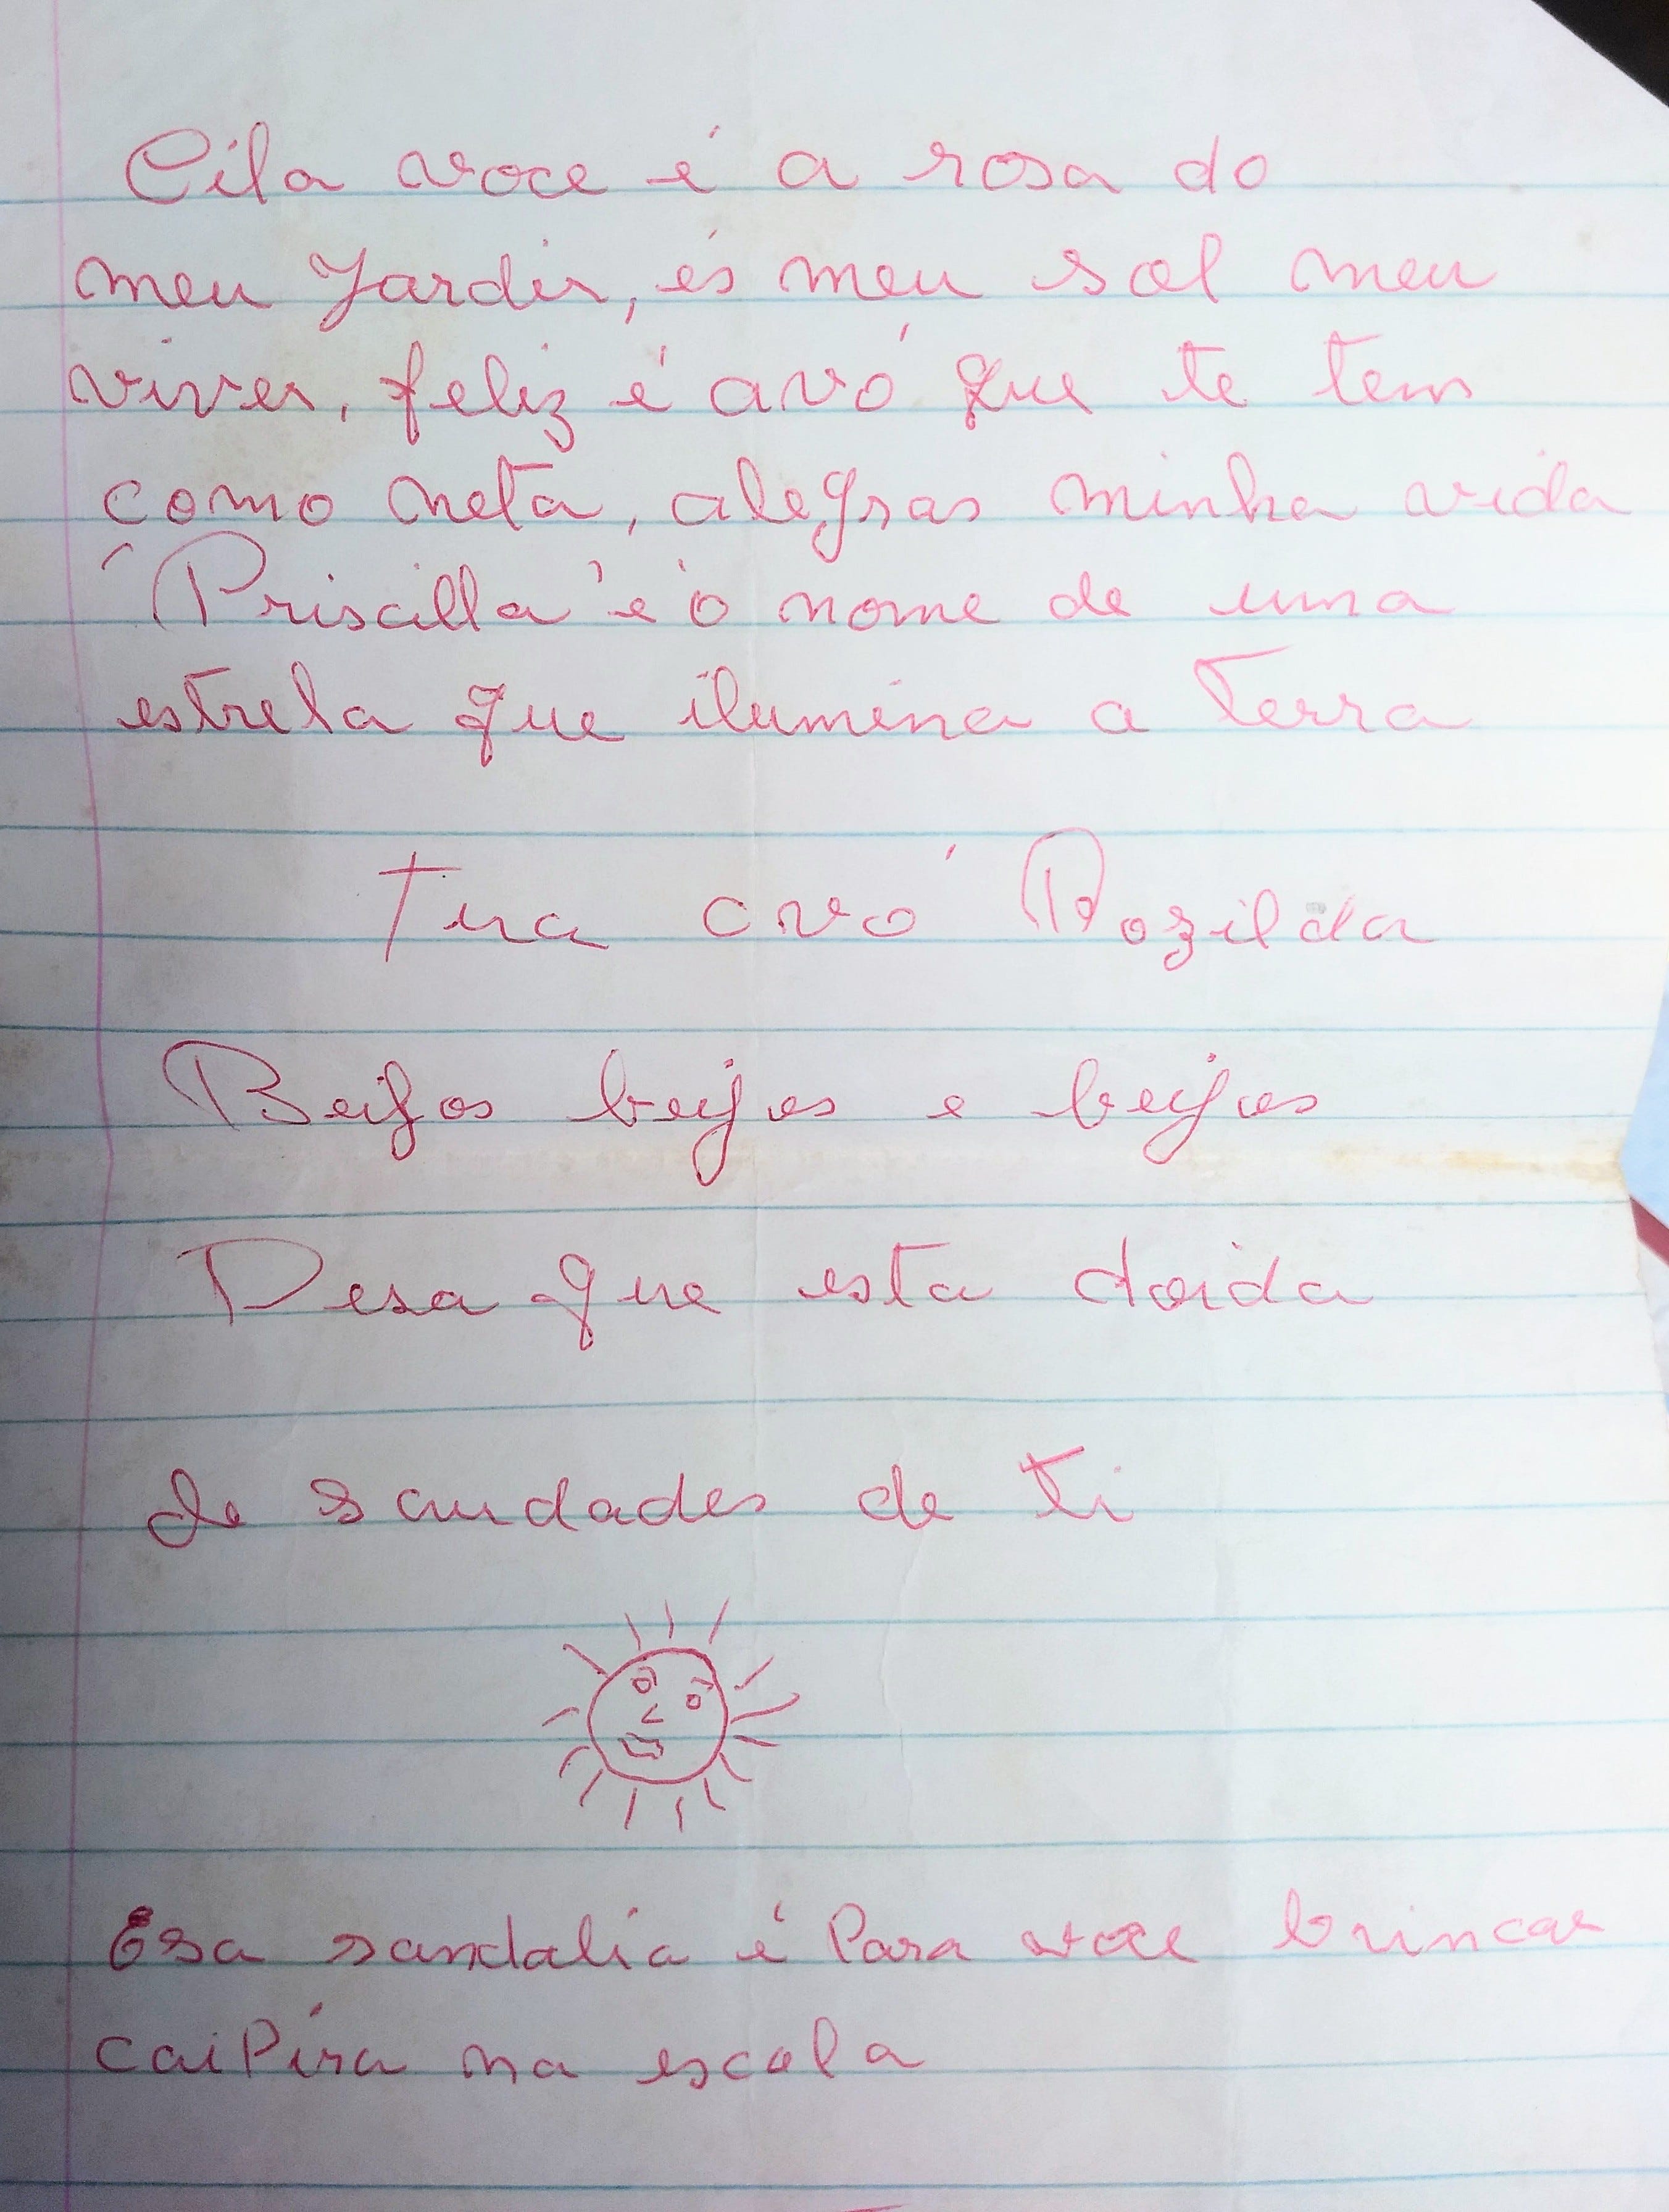 Cila voce é a rosa do
meu Jardin, és meu sol meu
viver, feliz é avó que te tem
como neta, alegras minha vida
"Priscilla" é o nome de uma
estrela que ilumina a Terra
Tua avó Rozilda
Beijos beijos e beijos
Desa que esta doida
de saudades de ti
Esa sandalia é Para voce brincar
caiPira na escola